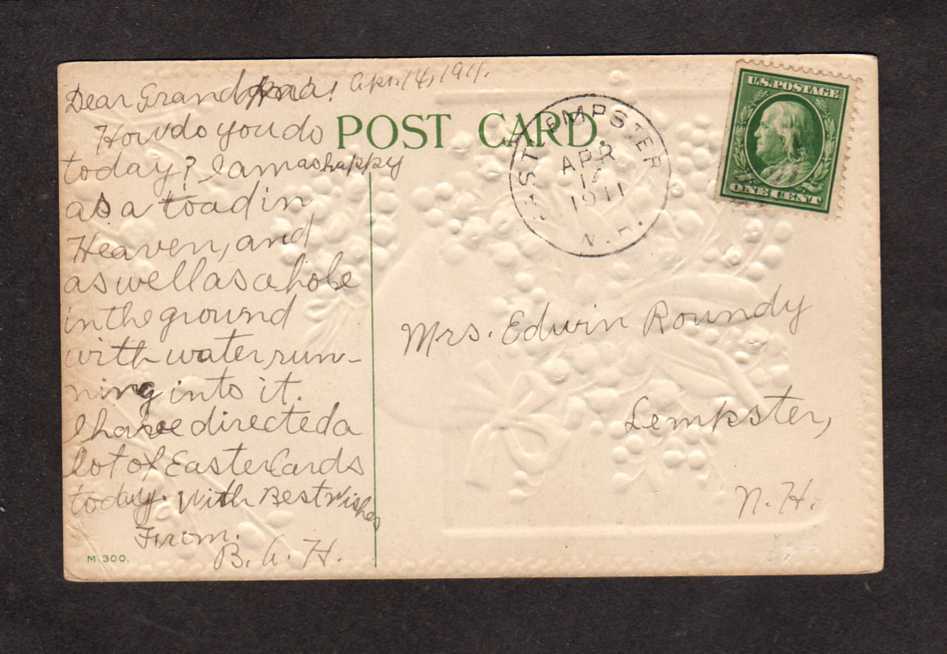 Dear Grandma! Apr. 14, 1911.
How do you do
today? I am as happy
as a toad in
Heaven, and
as well as a hole
in the ground
with water run-
ning into it.
I have directed a
lot of Easter Cards
today. With Best Wishes
From.
B. A. H.
M. 300.
POST CARD.
EAST LEMPSTER
APR
17
1911
N. H.
U.S. POSTAGE
ONE CENT
Mrs. Edwin Roundy
Lempster,
N. H.